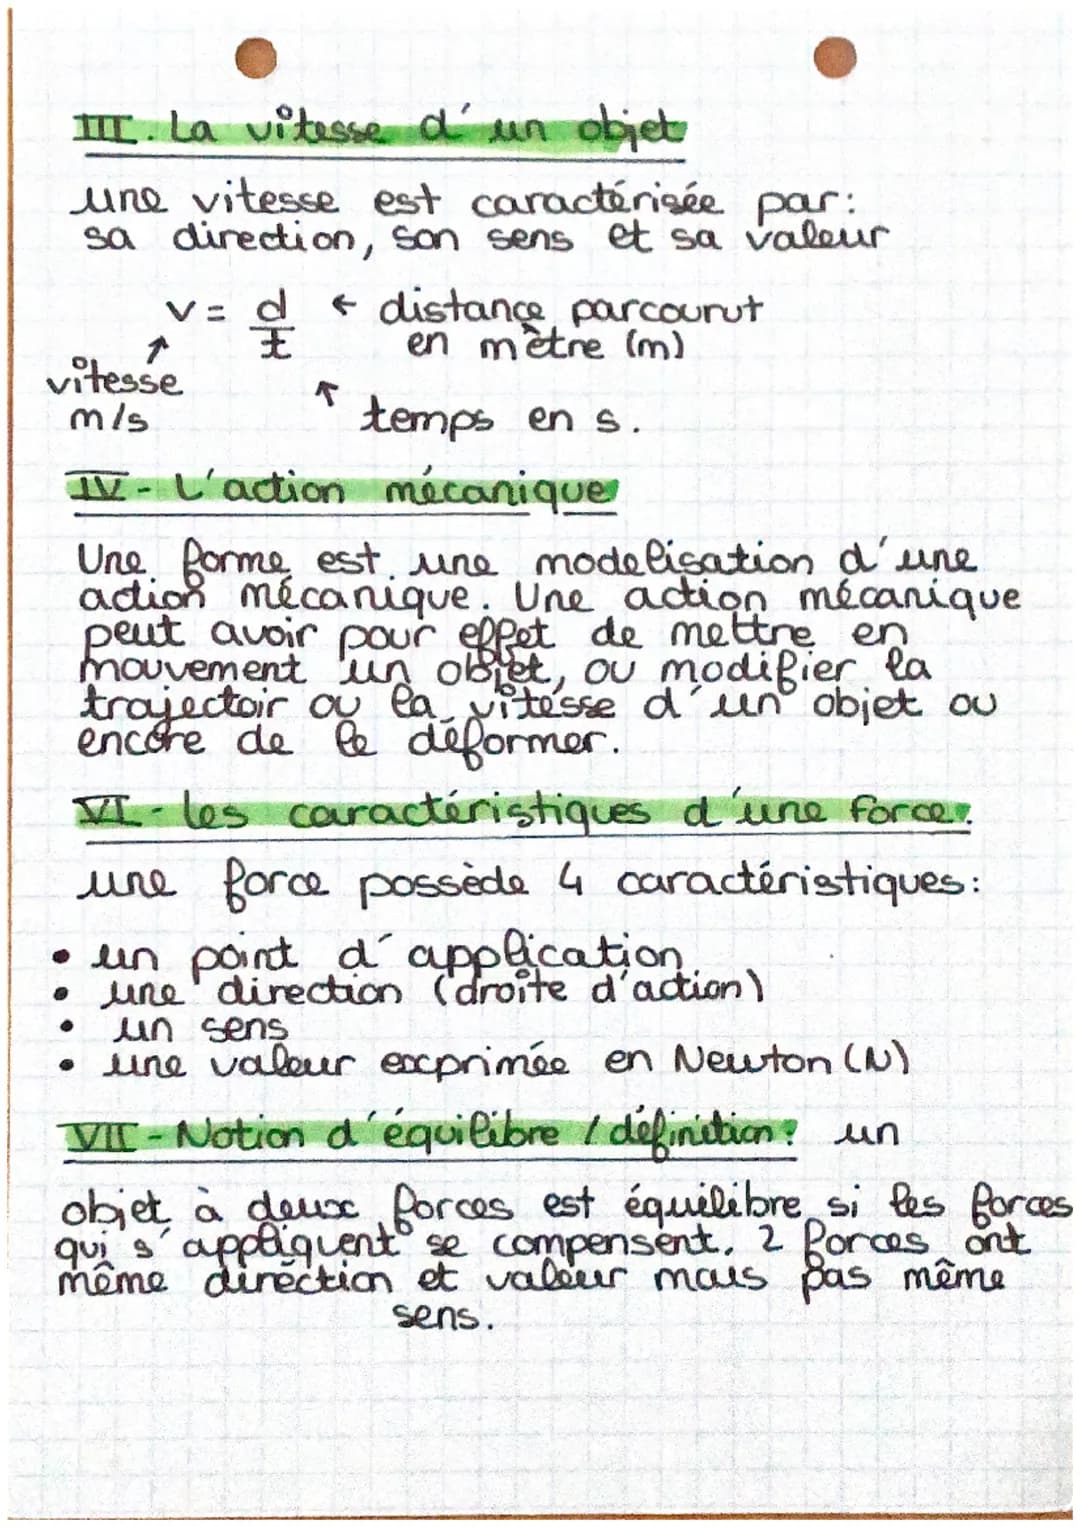 III. La vitesse d'un objet
une vitesse est caractérisée par:
sa direction, son sens et sa valeur
v = d/t ← distance parcourut
en mètre (m)
↑
vitesse
m/s
↖ temps en s.
IV - L'action mécanique
Une forme est une modelisation d'une
action mécanique. Une action mécanique
peut avoir pour effet de mettre en
mouvement un objet, ou modifier la
trajectoir ou la vitesse d'un objet ou
encore de le déformer.
VI - les caractéristiques d'une force.
une force possède 4 caractéristiques:
• un point d'application
• une direction (droite d'action)
• un sens
• une valeur exprimée en Newton (N)
VII - Notion d'équilibre / définition: un
objet à deux forces est équilibre si les forces
qui s'appliquent se compensent. 2 forces ont
même direction et valeur mais pas même
sens.